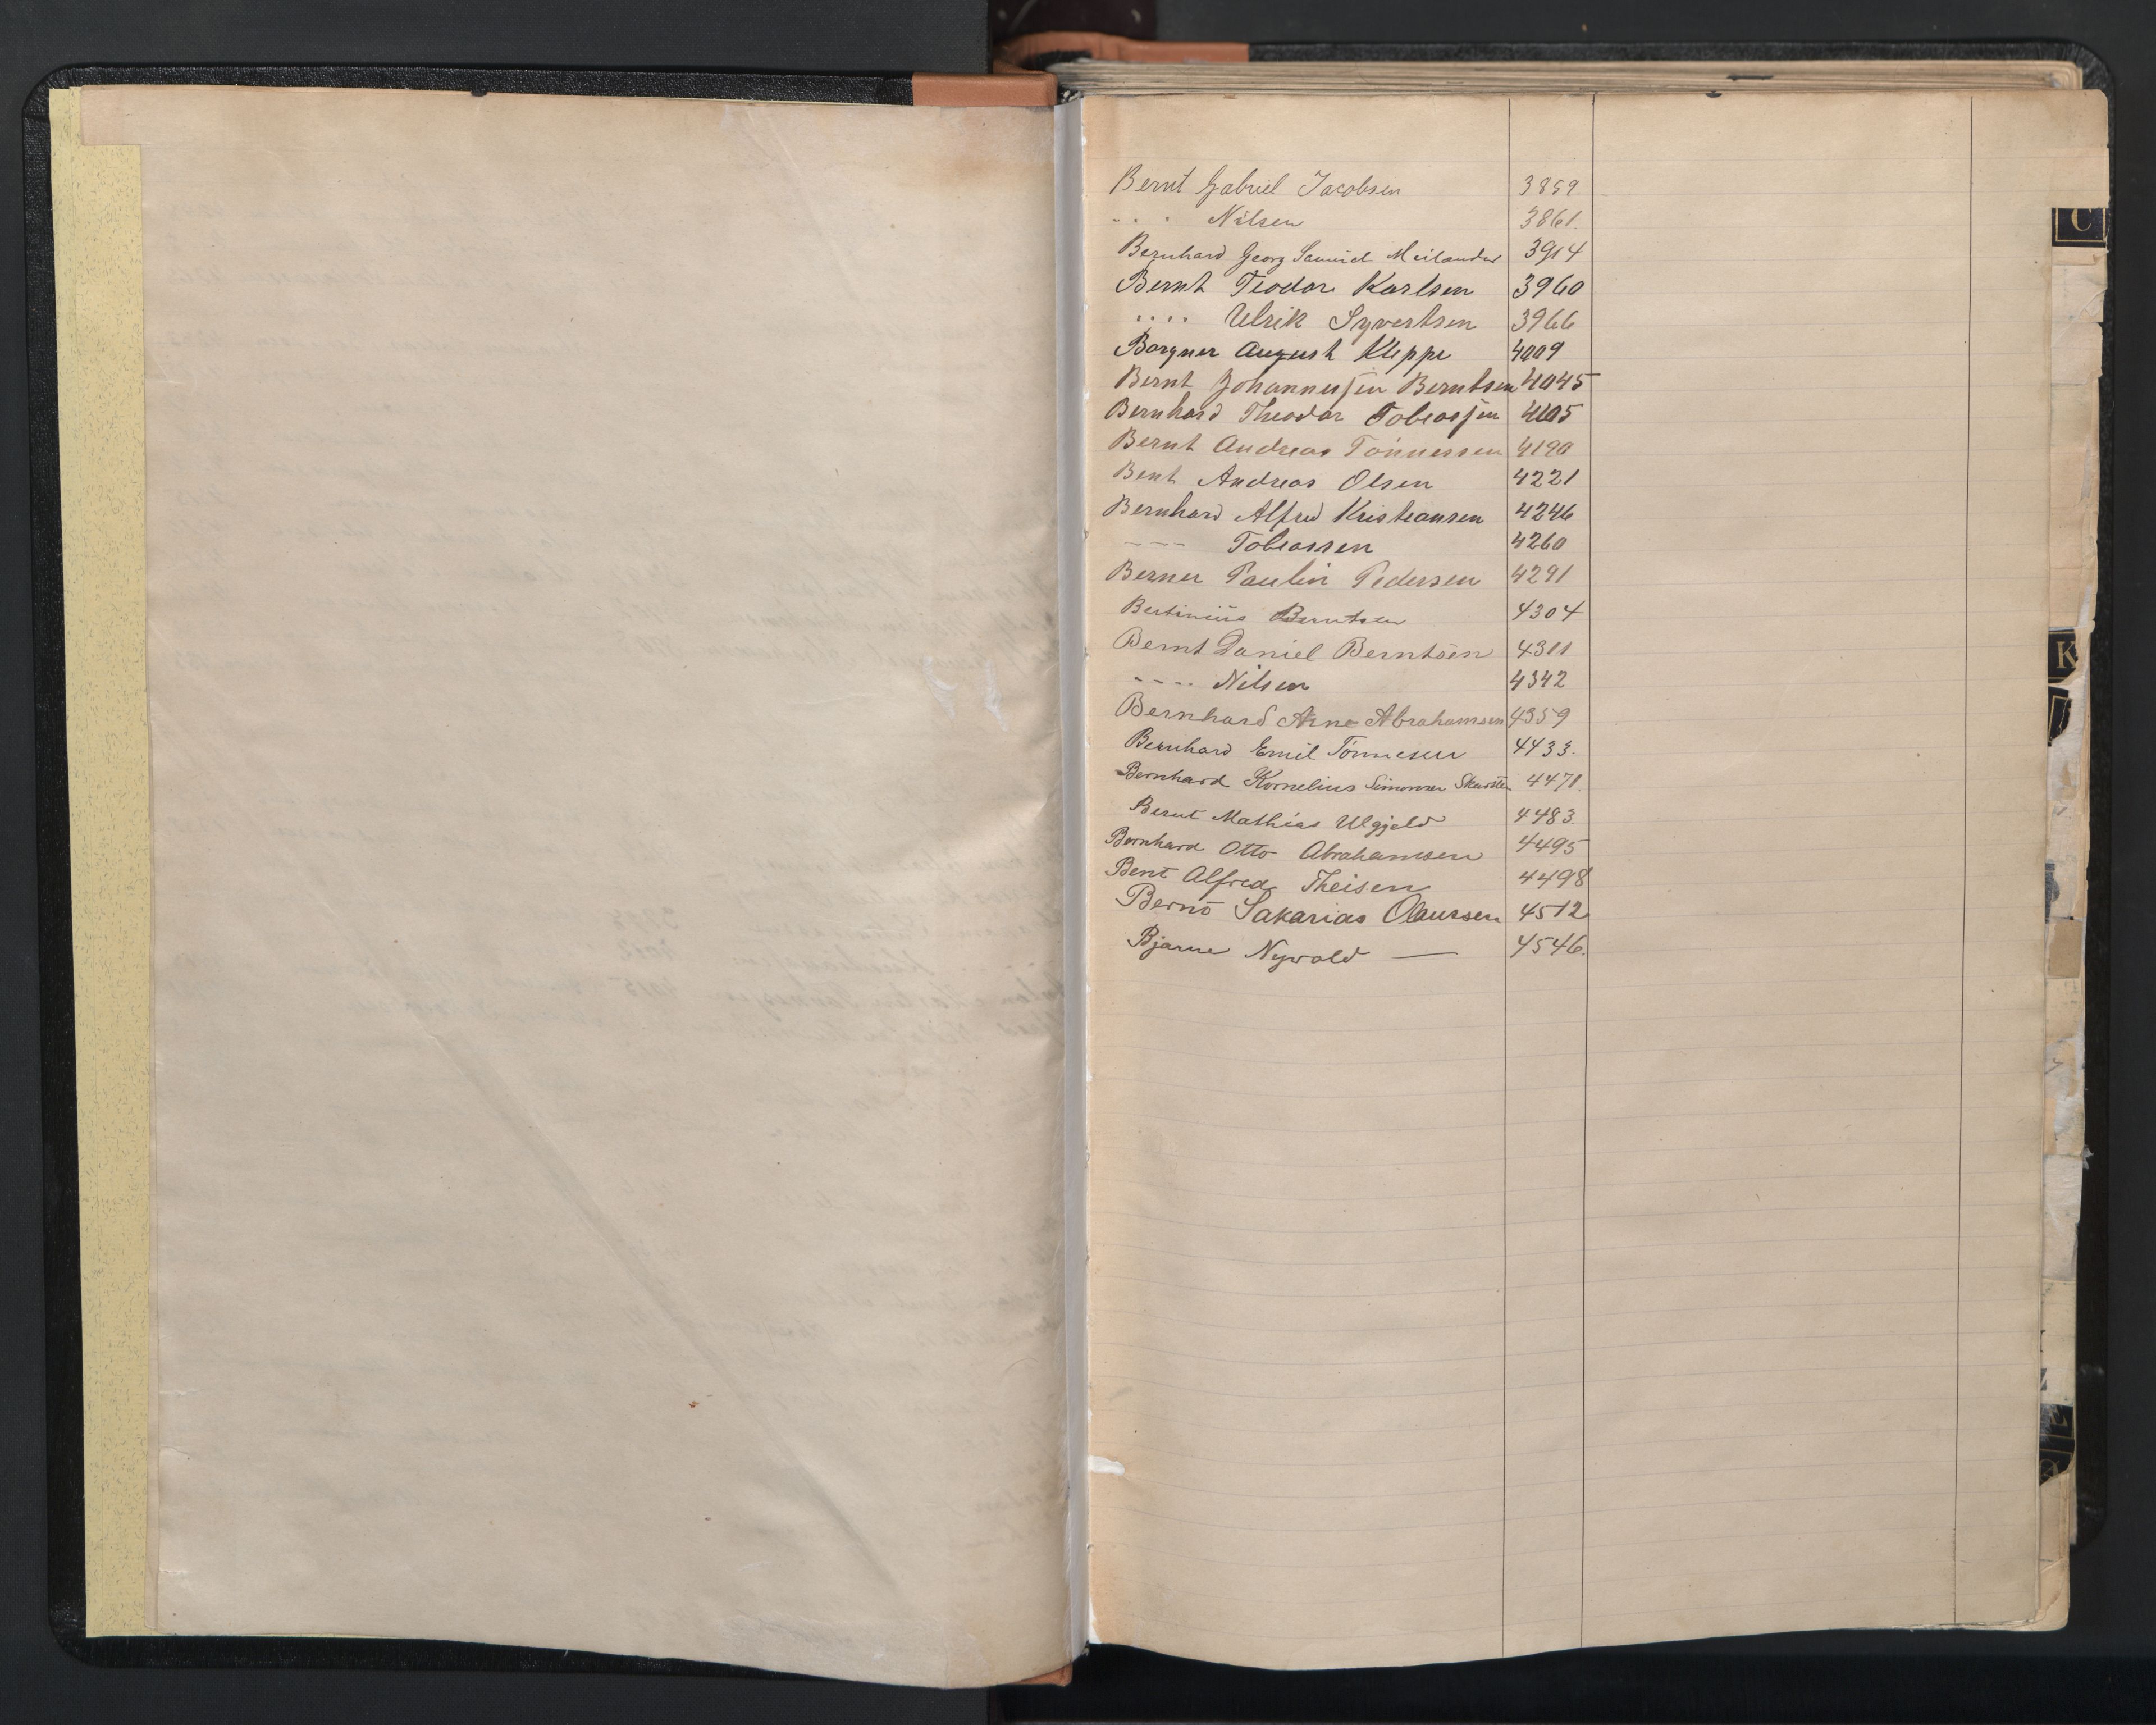 Bernt Gabriel Jacobsen 3859
- - - Nilsen 3861.
Bernhard Georg Samuel Meilander 3914
Bernt Teodor Karlsen 3960
.... Ulrik Syvertsen 3966
Borgner August Kleppe 4009
Bernt Johannessen Berntsen 4045
Bernhard Theodor Tobiassen 4105
Bernt Andreas Tönnessen 4190
Bent Andreas Olsen 4221
Bernhard Alfred Kristiansen 4246
- - - Tobiassen 4260
Berner Paulin Pedersen 4291
Bertinius Berntsen 4304
Bernt Daniel Berntsen 4311
- - - - Nilsen 4342
Bernhard Arne Abrahamsen 4359
Bernhard Emil Tönnesen 4433.
Bernhard Kornelius Simonsen 4471.
Bernt Mathias Ulgjeld 4483
Bernhard Otto Abrahamsen 4495
Bent Alfred Theisen 4498
Bernt Sakarias Olaussen 4512
Bjarne Nywold — 4546.
C
K